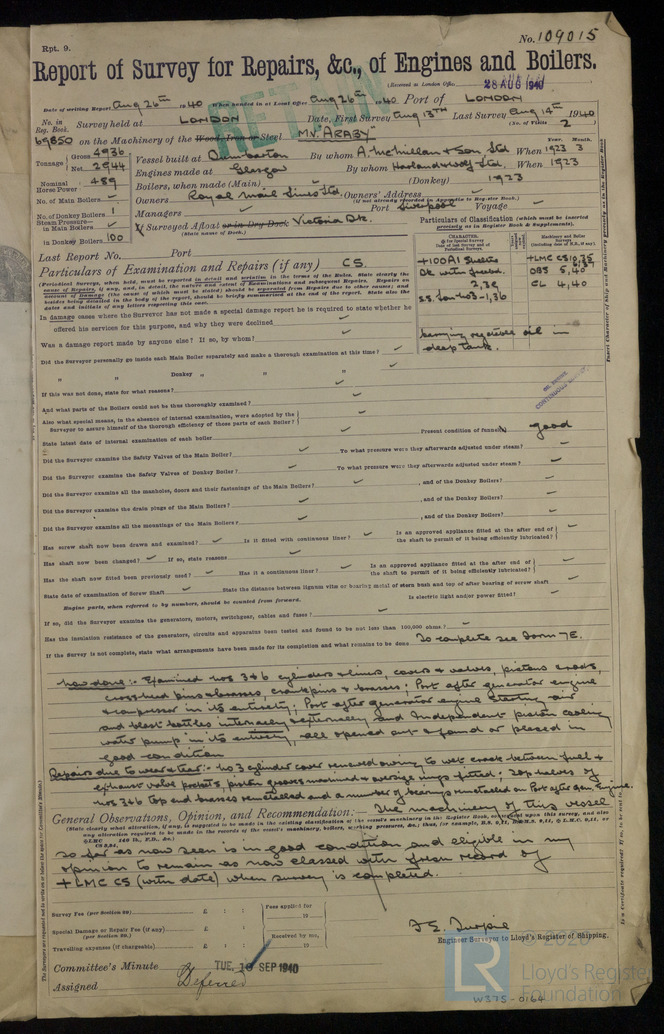 Rpt. 9.
No. 109015
Report of Survey for Repairs, &c., of Engines and Boilers.
(Received at London Office 28 AUG 1940
RETAIN
Date of writing Report Aug 26th 1940 When handed in at Local Office Aug 26th 1940 Port of LONDON
No. in Reg. Book. Survey held at LONDON Date, First Survey Aug 13th Last Survey Aug 14th 1940
(No. of Visits 2
69850 on the Machinery of the Wood, Iron or Steel MV. "ARABY"
Tonnage Gross 4936 Net 2944
Vessel built at Dumbarton By whom A. McMillan & Son Ltd When 1923 3
Year. Month.
Engines made at Glasgow By whom Harland & Wolff Ltd. When 1923
Nominal Horse Power 489
Boilers, when made (Main) (Donkey) 1923
No. of Main Boilers
Owners Royal Mail Lines Ltd. Owners' Address
(if not already recorded in Appendix to Register Book.)
No. of Donkey Boilers 1
Managers Port Liverpool Voyage
Steam Pressure in Main Boilers
in Donkey Boilers 100
If Surveyed Afloat or in Dry Dock Victoria Dk.
(State name of Dock.)
Particulars of Classification (which must be inserted precisely as in Register Book & Supplements).
Last Report No. Port
Particulars of Examination and Repairs (if any) CS
+100A1
Dk with freeb.
2,39
+LMC CS 10,35
DBS 5,40
CL 4,40
carrying vegetable oil in
deep tank.
In damage cases where the Surveyor has not made a special damage report he is required to state whether he
offered his services for this purpose, and why they were declined
Was a damage report made by anyone else? If so, by whom?
Did the Surveyor personally go inside each Main Boiler separately and make a thorough examination at this time?
" " Donkey " " "
If this was not done, state for what reasons?
And what parts of the Boilers could not be thoroughly examined?
Also what special means, in the absence of internal examination, were adopted by the
Surveyor to assure himself of the thorough efficiency of those parts of each Boiler?
State latest date of internal examination of each boiler Present condition of funnel good
Did the Surveyor examine the Safety Valves of the Main Boiler? To what pressure were they afterwards adjusted under steam?
Did the Surveyor examine the Safety Valves of Donkey Boiler? To what pressure were they afterwards adjusted under steam?
Did the Surveyor examine all the manholes, doors and their fastenings of the Main Boilers? , and of the Donkey Boilers?
Did the Surveyor examine the drain plugs of the Main Boilers? , and of the Donkey Boilers?
Did the Surveyor examine all the mountings of the Main Boilers? , and of the Donkey Boilers?
Has screw shaft now been drawn and examined? Is it fitted with continuous liner? Is an approved appliance fitted at the after end of the shaft to permit of it being efficiently lubricated?
Has shaft now been changed? If so, state reasons
Has the shaft now fitted been previously used? Has it a continuous liner? Is an approved appliance fitted at the after end of the shaft to permit of it being efficiently lubricated?
State date of examination of Screw Shaft State the distance between lignum vitæ or bearing metal of stern bush and top of after bearing of screw shaft
Engine parts, when referred to by numbers, should be counted from forward. Is electric light and/or power fitted?
If so, did the Surveyor examine the generators, motors, switchgear, cables and fuses?
Has the insulation resistance of the generators, circuits and apparatus been tested and found to be not less than 100,000 ohms?
If the Survey is not complete, state what arrangements have been made for its completion and what remains to be done To complete see Form 7E.
Now done:- Examined Nos 3 & 6 cylinders & liners, covers & valves, pistons & rods,
crosshead pins & brasses, crankpins & brasses; Port after generator engine
& compressor in its entirety; Port after generator engine starting air
and blast bottles internally & externally and Independent piston cooling
water pump in its entirety, all opened out & found or placed in
good condition
Repairs due to wear & tear:- No 3 cylinder cover renewed owing to wet crack between fuel &
exhaust valve pockets, piston grooves machined & oversize rings fitted; top halves of
Nos 3 & 6 top end brasses remetalled and a number of bearings remetalled on Port after gen. Engine.
General Observations, Opinion, and Recommendation:— The machinery of this vessel
(State clearly what alteration, if any, is suggested to be made in the existing classification of the vessel's machinery in the Register Book,
so far as now seen is in good condition and eligible in my
opinion to remain as now classed with fresh record of
+LMC CS (with date) when survey is completed.
Survey Fee (per Section 29) £ : : Fees applied for
19
Special Damage or Repair Fee (if any) £ : :
(per Section 29.)
Received by me,
Travelling expenses (if chargeable) £ : : 19
Engineer Surveyor to Lloyd's Register of Shipping.
Committee's Minute TUE. 10 SEP 1940
Assigned Deferred
© 2020
LR
Lloyd's Register
Foundation
W375-0164